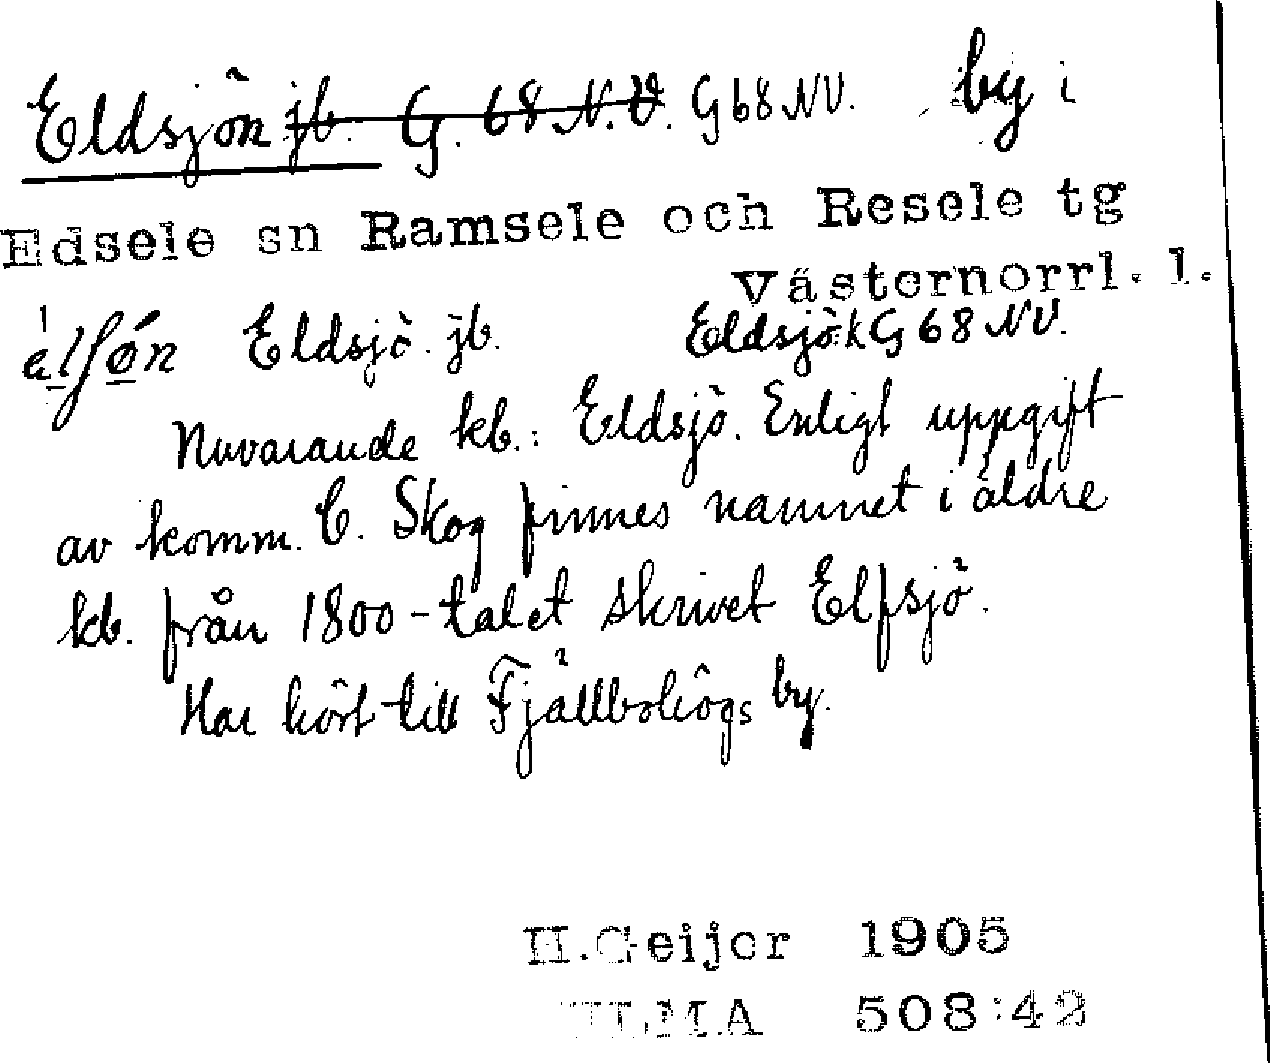 Eldsjön jb. G. 68 N.V. G68NV. by i
Edsele sn Ramsele och Resele tg
Västernorrl. l.
Eldsjö. jb. Eldsjö:k G 68 NV.
Nuvarande kb.: Eldsjö. Enligt uppgift
av komm. C. Skog finnes namnet i äldre
kb. från 1800-talet skrivet Elfsjö.
Har hört till Fjällbohögs by.
H.Geijer 1905
ULMA 508:42